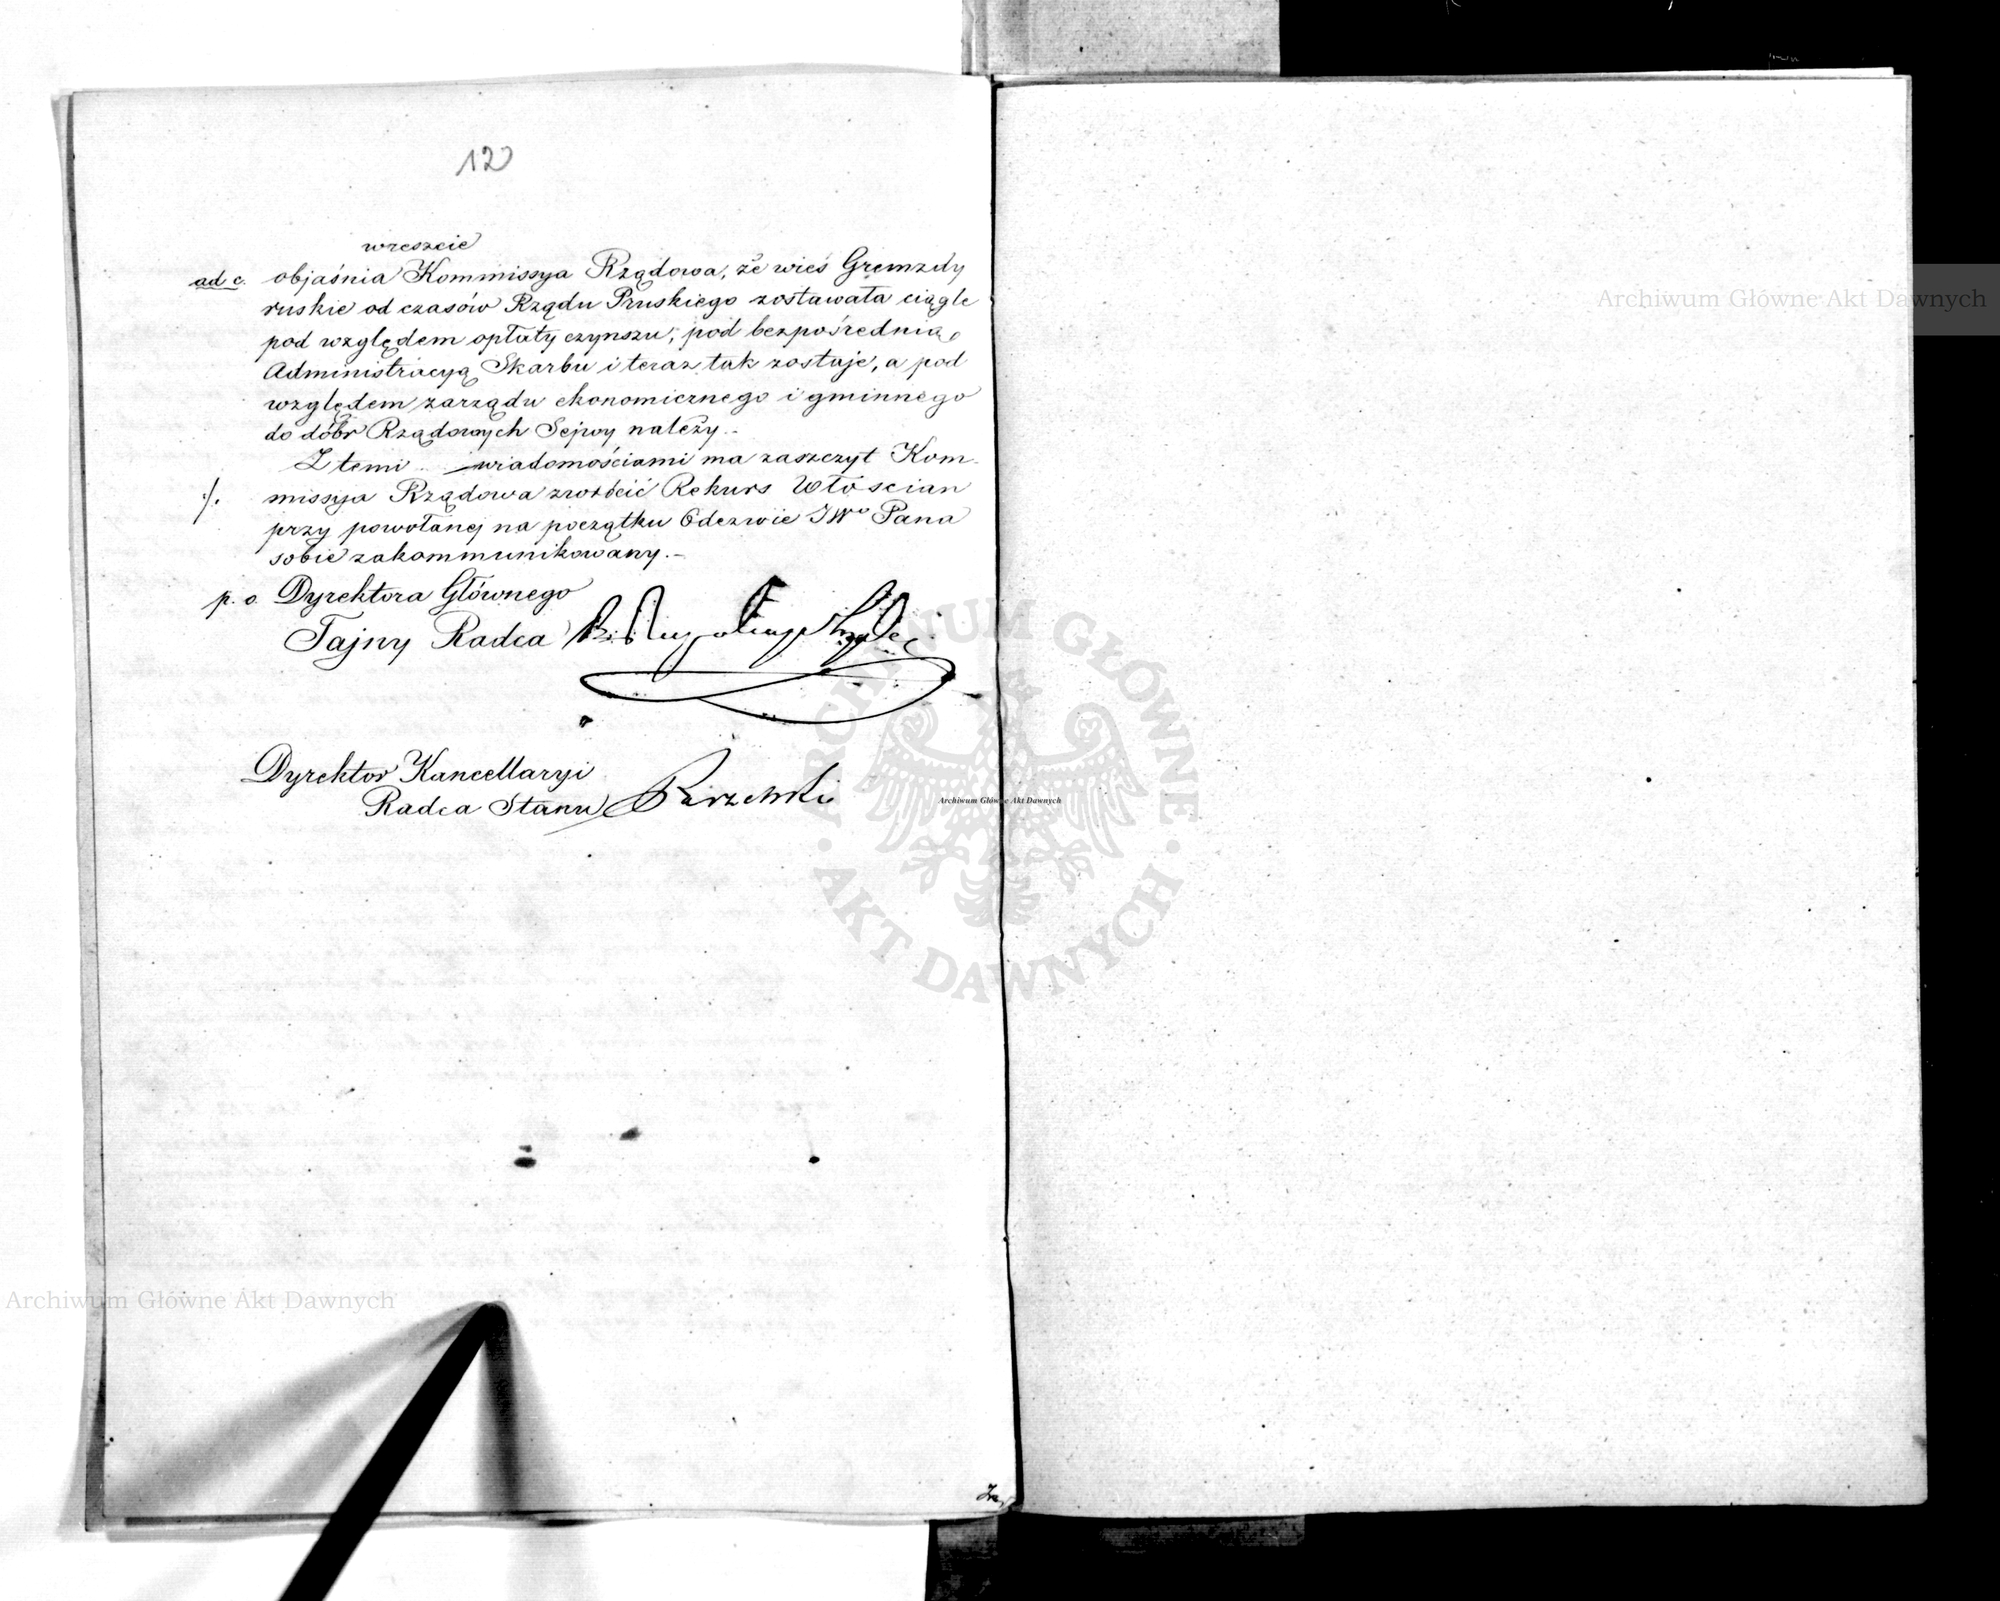 12
wreszcie
ad c. objaśnia Kommissya Rządowa, że wieś Gremzdy
ruskie od czasów Rządu Pruskiego zostawała ciągle
pod względem opłaty czynszu, pod bezpośrednią
Administracyą Skarbu i teraz tak zostaje, a pod
względem zarządu ekonomicznego i gminnego
do dóbr Rządowych Sejwy należy.–
Z temi wiadomościami ma zaszczyt Kom-
./. missya Rządowa zwrócić Rekurs Włościan
przy powołanej na początku Odezwie JWo Pana
sobie zakommunikowany.–
p. o. Dyrektora Głównego
Tajny Radca
Dyrektor Kancellaryi
Radca Stanu
Archiwum Główne Akt Dawnych
Archiwum Główne Akt Dawnych
Archiwum Główne Akt Dawnych
ARCHIWUM GŁÓWNE · AKT DAWNYCH ·